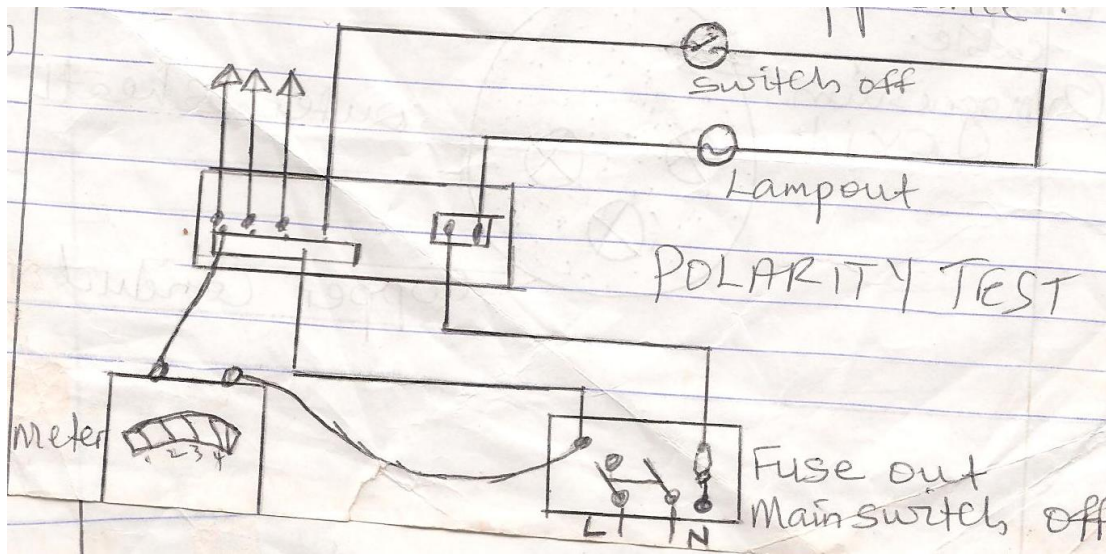 switch off
Lampout
POLARITY TEST
meter
1 2 3 4
Fuse out
Main switch off
L N